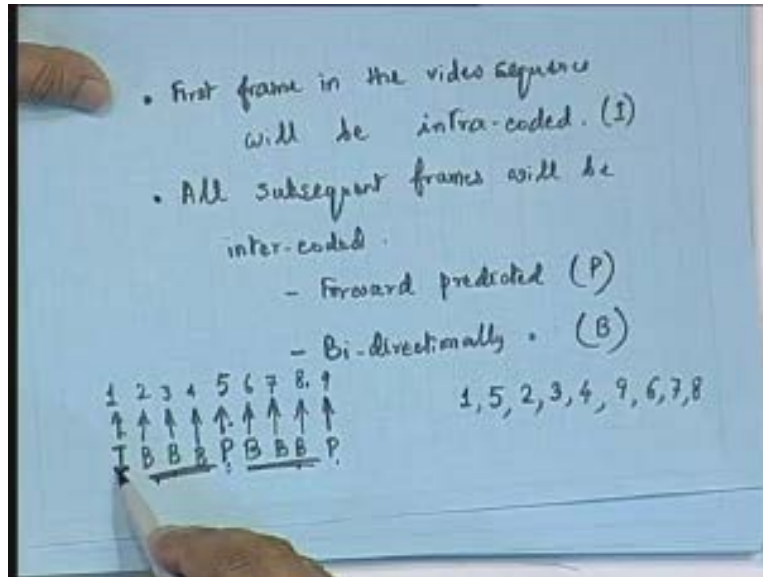 • First frame in the video sequence
will be intra-coded. (I)
• All subsequent frames will be
inter-coded.
- Forward predicted (P)
- Bi-directionally " (B)
1 2 3 4 5 6 7 8 9
1, 5, 2, 3, 4, 9, 6, 7, 8
I B B B P B B B P